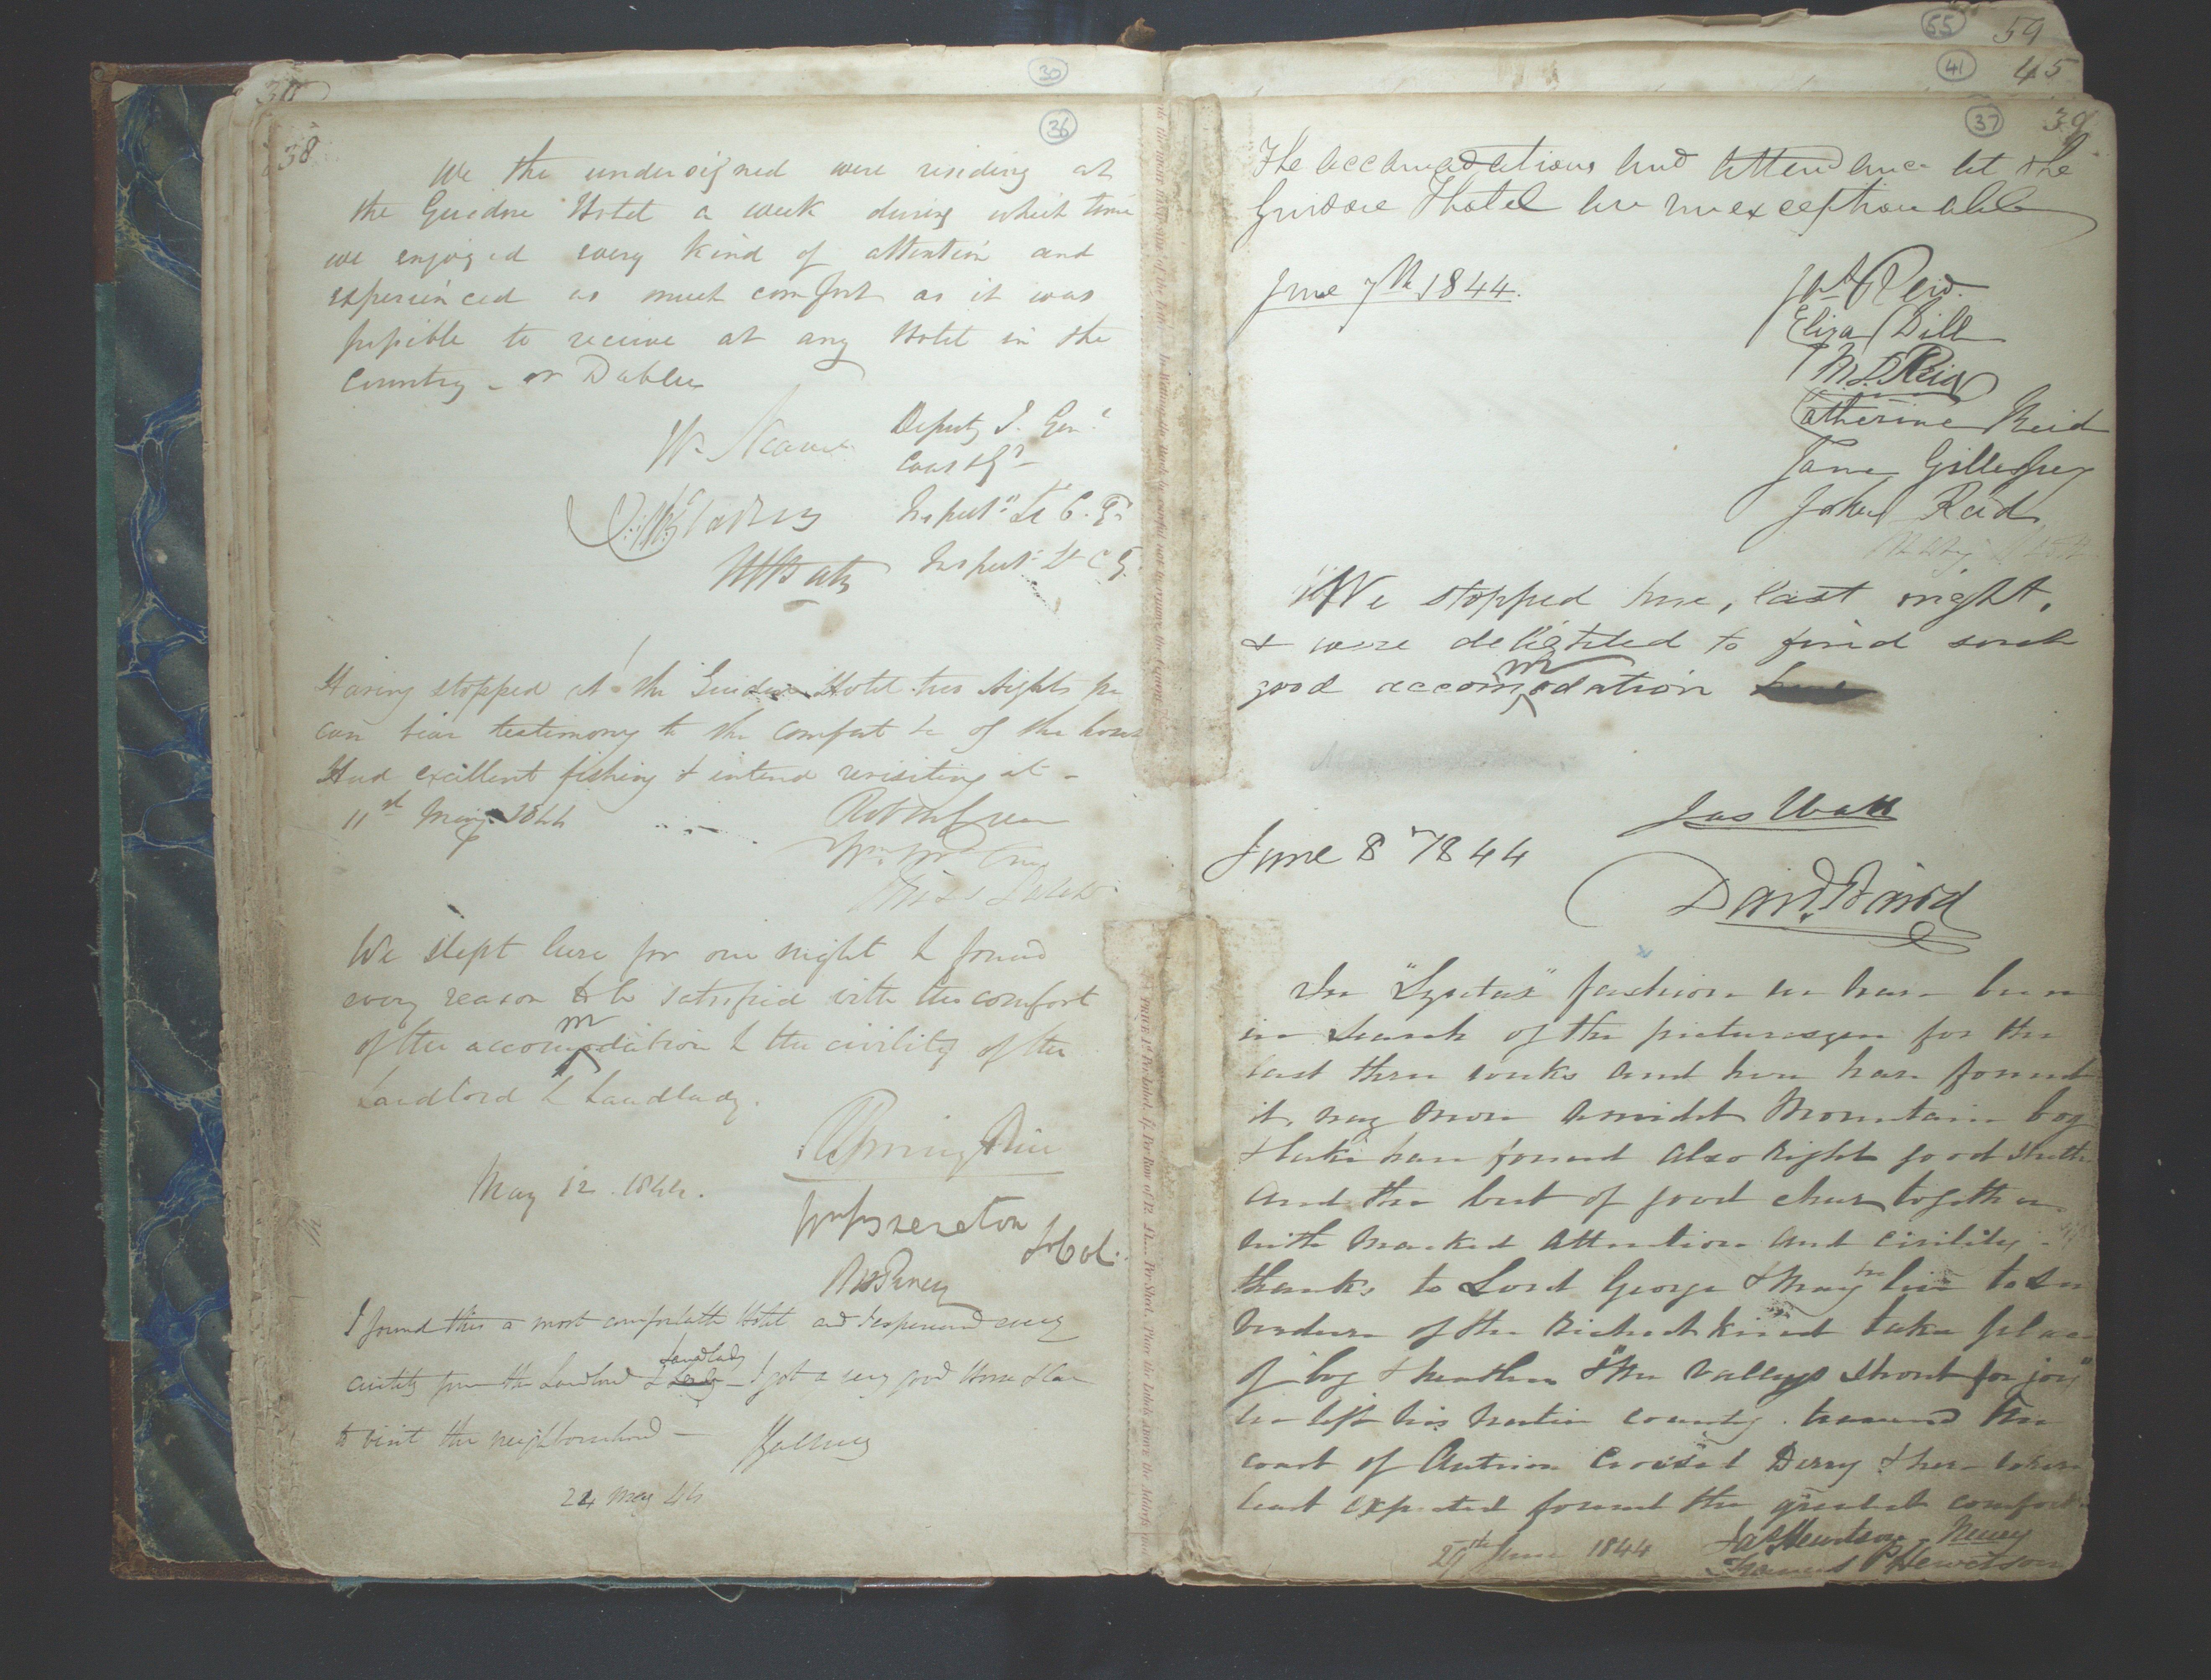 30
36
38
We the undersigned were residing at
the Gweedore Hotel a week during which time
we enjoyed every kind of attention and
experienced as much comfort as it was
possible to receive at any Hotel in the
Country - or Dublin
Deputy I. Genl
Coast Gd
Inspect. Lt C. G.
Inspect. Lt C G.
Having stopped at the Guidore Hotel two Nights we
can bear testimony to the comfort &c of the house
Had excellent fishing & intend revisiting it -
11st May 1844
We slept here for one night & found
every reason to be satisfied with the comfort
m
of the accomodation & the civility of the
Landlord & Landlady.
May 12. 1844.
Wm Brereton
Lt Col.
I found this a most comfortable Hotel and experienced every
Landlady
civility from the Landlord & - I got a very good Horse & Car
to visit the neighbourhood -
24 May 44
55 59
41 45
37 39
The accomadations and attendance at the
Guidore Hotel are unexceptionable
June 7th 1844.
Eliza Dill
Catherine Reid
Jane Gillespey
John Reid
We stopped here, last night,
& were delighted to find such
m
good accomodation
Jas Watt
June 8 1844
David Baird
In "Syntax" fashion we have been
in search of the picturesque for the
last three weeks and here have found
it, nay more amidst Mountain bog
& lake have found also right good
and the best of good cheer together
with marked attention and civility -
thanks to Lord George & may he live to see
verdure of the richest kind take place
of bog & heather & "the valleys shout for joy"
we left his native county. traversed the
coast of Antrim crossed Derry & here where
least expected found the greatest comfort
29th June 1844 Jas Hewitson - Newry
Thomas P Hewitson